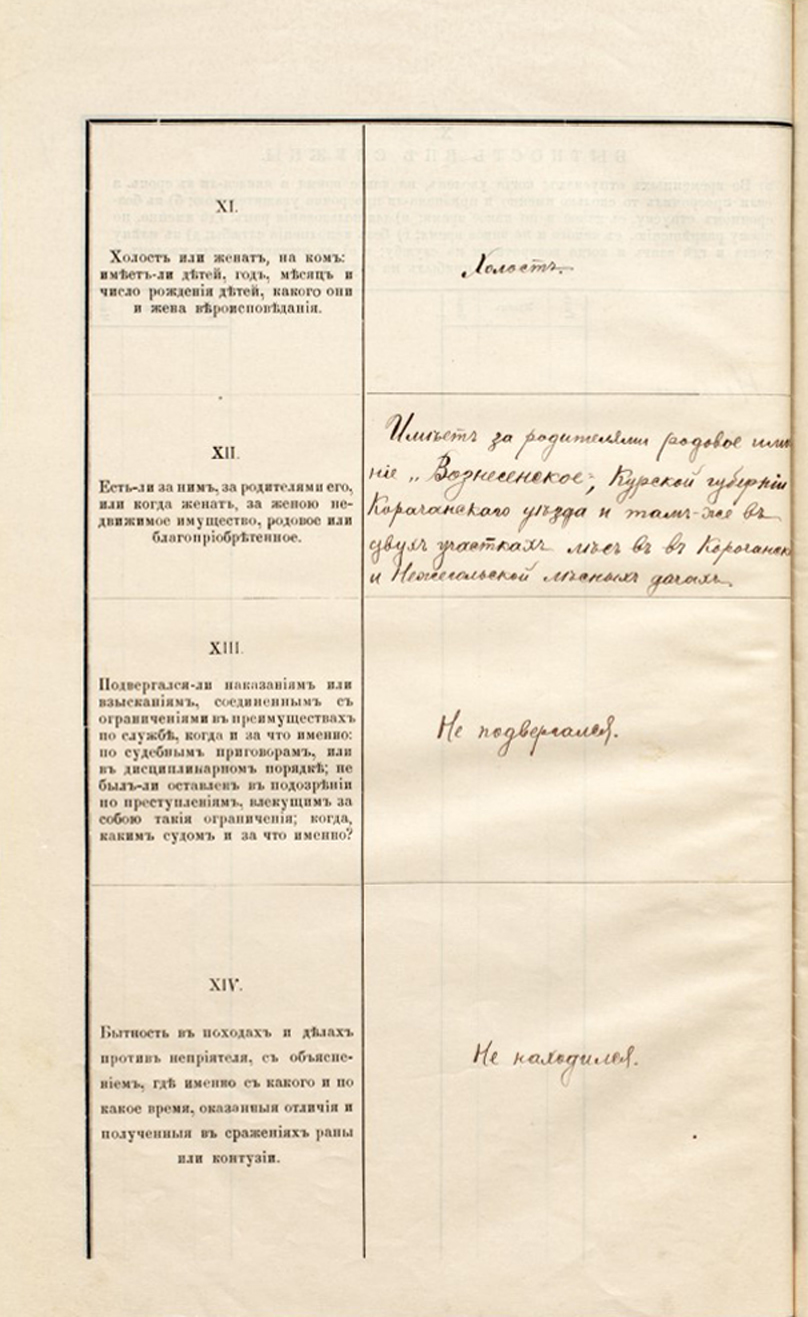 XI.
Холостъ или женатъ, на комъ:
имѣетъ-ли дѣтей, годъ, мѣсяцъ и
число рожденія дѣтей, какого они
и жена вѣроисповѣданія.
Холостъ.
XII.
Есть-ли за нимъ, за родителями его,
или когда женатъ, за женою не-
движимое имущество, родовое или
благопріобрѣтенное.
Имѣетъ за родителями родовое имѣ
ніе „Вознесенское", Курской губерніи
Корочанскаго уѣзда и тамъ-же въ
двухъ участкахъ лѣсъ въ въ Корочанск
и Нежегольской лѣсныхъ дачахъ.
XIII.
Подвергался-ли наказаніямъ или
взысканіямъ, соединеннымъ съ
ограниченіями въ преимуществахъ
по службѣ, когда и за что именно:
по судебнымъ приговорамъ, или
въ дисциплинарномъ порядкѣ; не
былъ-ли оставленъ въ подозрѣніи
по преступленіямъ, влекущимъ за
собою такія ограниченія; когда,
какимъ судомъ и за что именно?
Не подвергался.
XIV.
Бытность въ походахъ и дѣлахъ
противъ непріятеля, съ объясне-
ніемъ, гдѣ именно съ какого и по
какое время, оказанныя отличія и
полученныя въ сраженіяхъ раны
или контузіи.
Не находился.